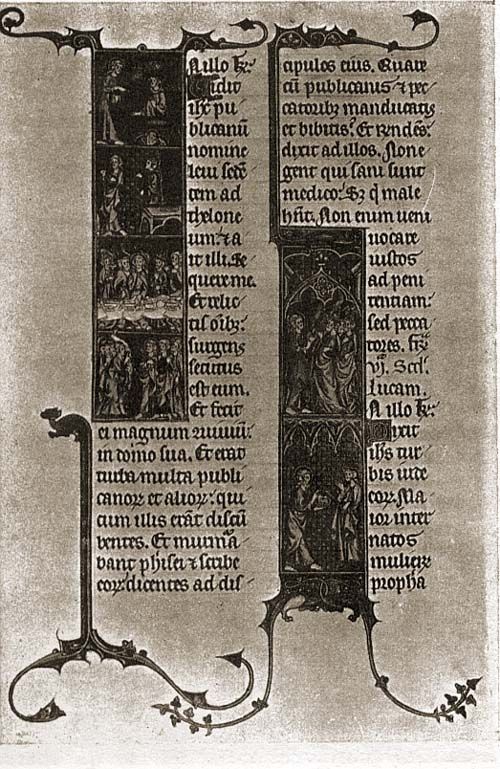 N illo t̄:
Vidit
ihc pu
blicanū
nomine
leui sedē
tem ad
thelone
um: ⁊ a
it illi. Se
quere me.
Et relic
tis oīb:
surgens
secutus
est eum.
Et fecit
ei magnum
in domo sua. Et erat
turba multa publi
canoꝝ et alioꝝ: qui
cum illis erāt discū
bentes. Et murmᵃ
bant pharisei ⁊ scribe
eoꝝ dicentes ad dis
cipulos eius. Quare
cū publicanis ⁊ pec
catoribꝫ manducatis
et bibitis? Et
dixit ad illos. Non e
gent qui sani sunt
medico: Sꝫ q̄ male
hn̄t. Non enim ueni
uocare
iustos
ad peni
tentiam:
sed pecca
tores.
vj. Scd̄.
Lucam.
N illo t̄:
Dixit
ihs tur
bis iude
oꝝ. Ma
ior inter
natos
mulieꝝ
propha